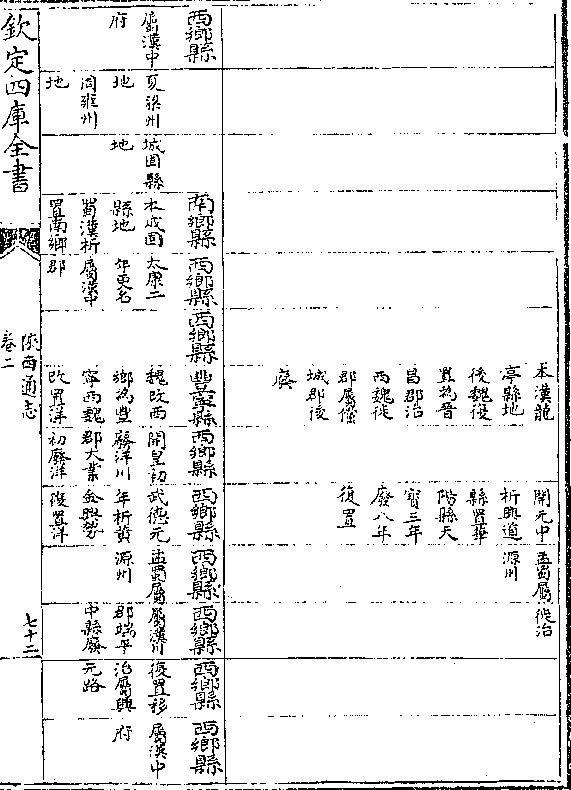 西鄉縣
屬漢中
府
夏梁州
地
周雍州
地
城固縣
地
南鄉縣
本成固
縣地
蜀漢析
置南鄉
郡
西鄉縣
太康二
年更名
屬漢中
西鄉縣
本漢龍
亭縣地
後魏復
置為晉
昌郡治
西魏徙
郡屬儻
城郡後
廢
豐寧縣
魏改西
鄉為豐
寧西魏
改置洋
西鄉縣
開皇初
廢洋川
郡大業
初廢洋
開元中
析興道
縣置華
階縣天
寶三年
廢八年
復置
西鄉縣
武德元
年析黃
金興勢
復置洋
孟蜀屬
源州
西鄉縣
孟蜀屬
源州
徙治
西鄉縣
屬漢川
郡端平
中縣廢
西鄉縣
復置移
治屬興
元路
西鄉縣
屬漢中
府
欽定四庫全書
陝西通志
卷二
七十二